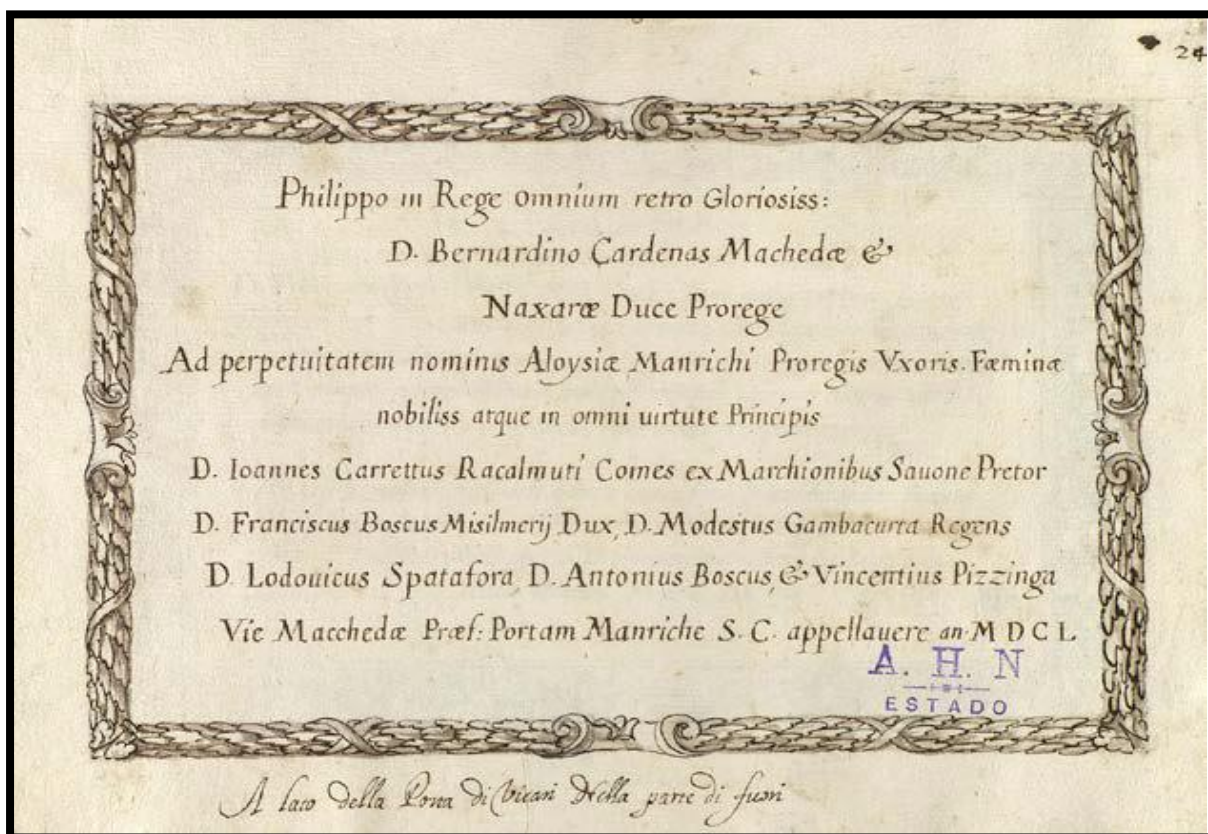 24
Philippo in Rege omnium retro Gloriosiss:
D. Bernardino Cardenas Machedæ &
Naxaræ Duce Prorege
Ad perpetuitatem nominis Aloysiæ Manrichi Proregis Vxoris. Fæminæ
nobiliss atque in omni uirtute Principis
D. Ioannes Carrettus Racalmuti Comes ex Marchionibus Sauone Pretor
D. Franciscus Boscus Misilmerij Dux, D. Modestus Gambacurta Regens
D. Lodouicus Spatafora D. Antonius Boscus & Vincentius Pizzinga
Vie Macchedæ Præf: Portam Manriche S. C. appellauere an. M D C L
A. H. N
ESTADO
A lato della Porta di Vicari Nella parte di fuori